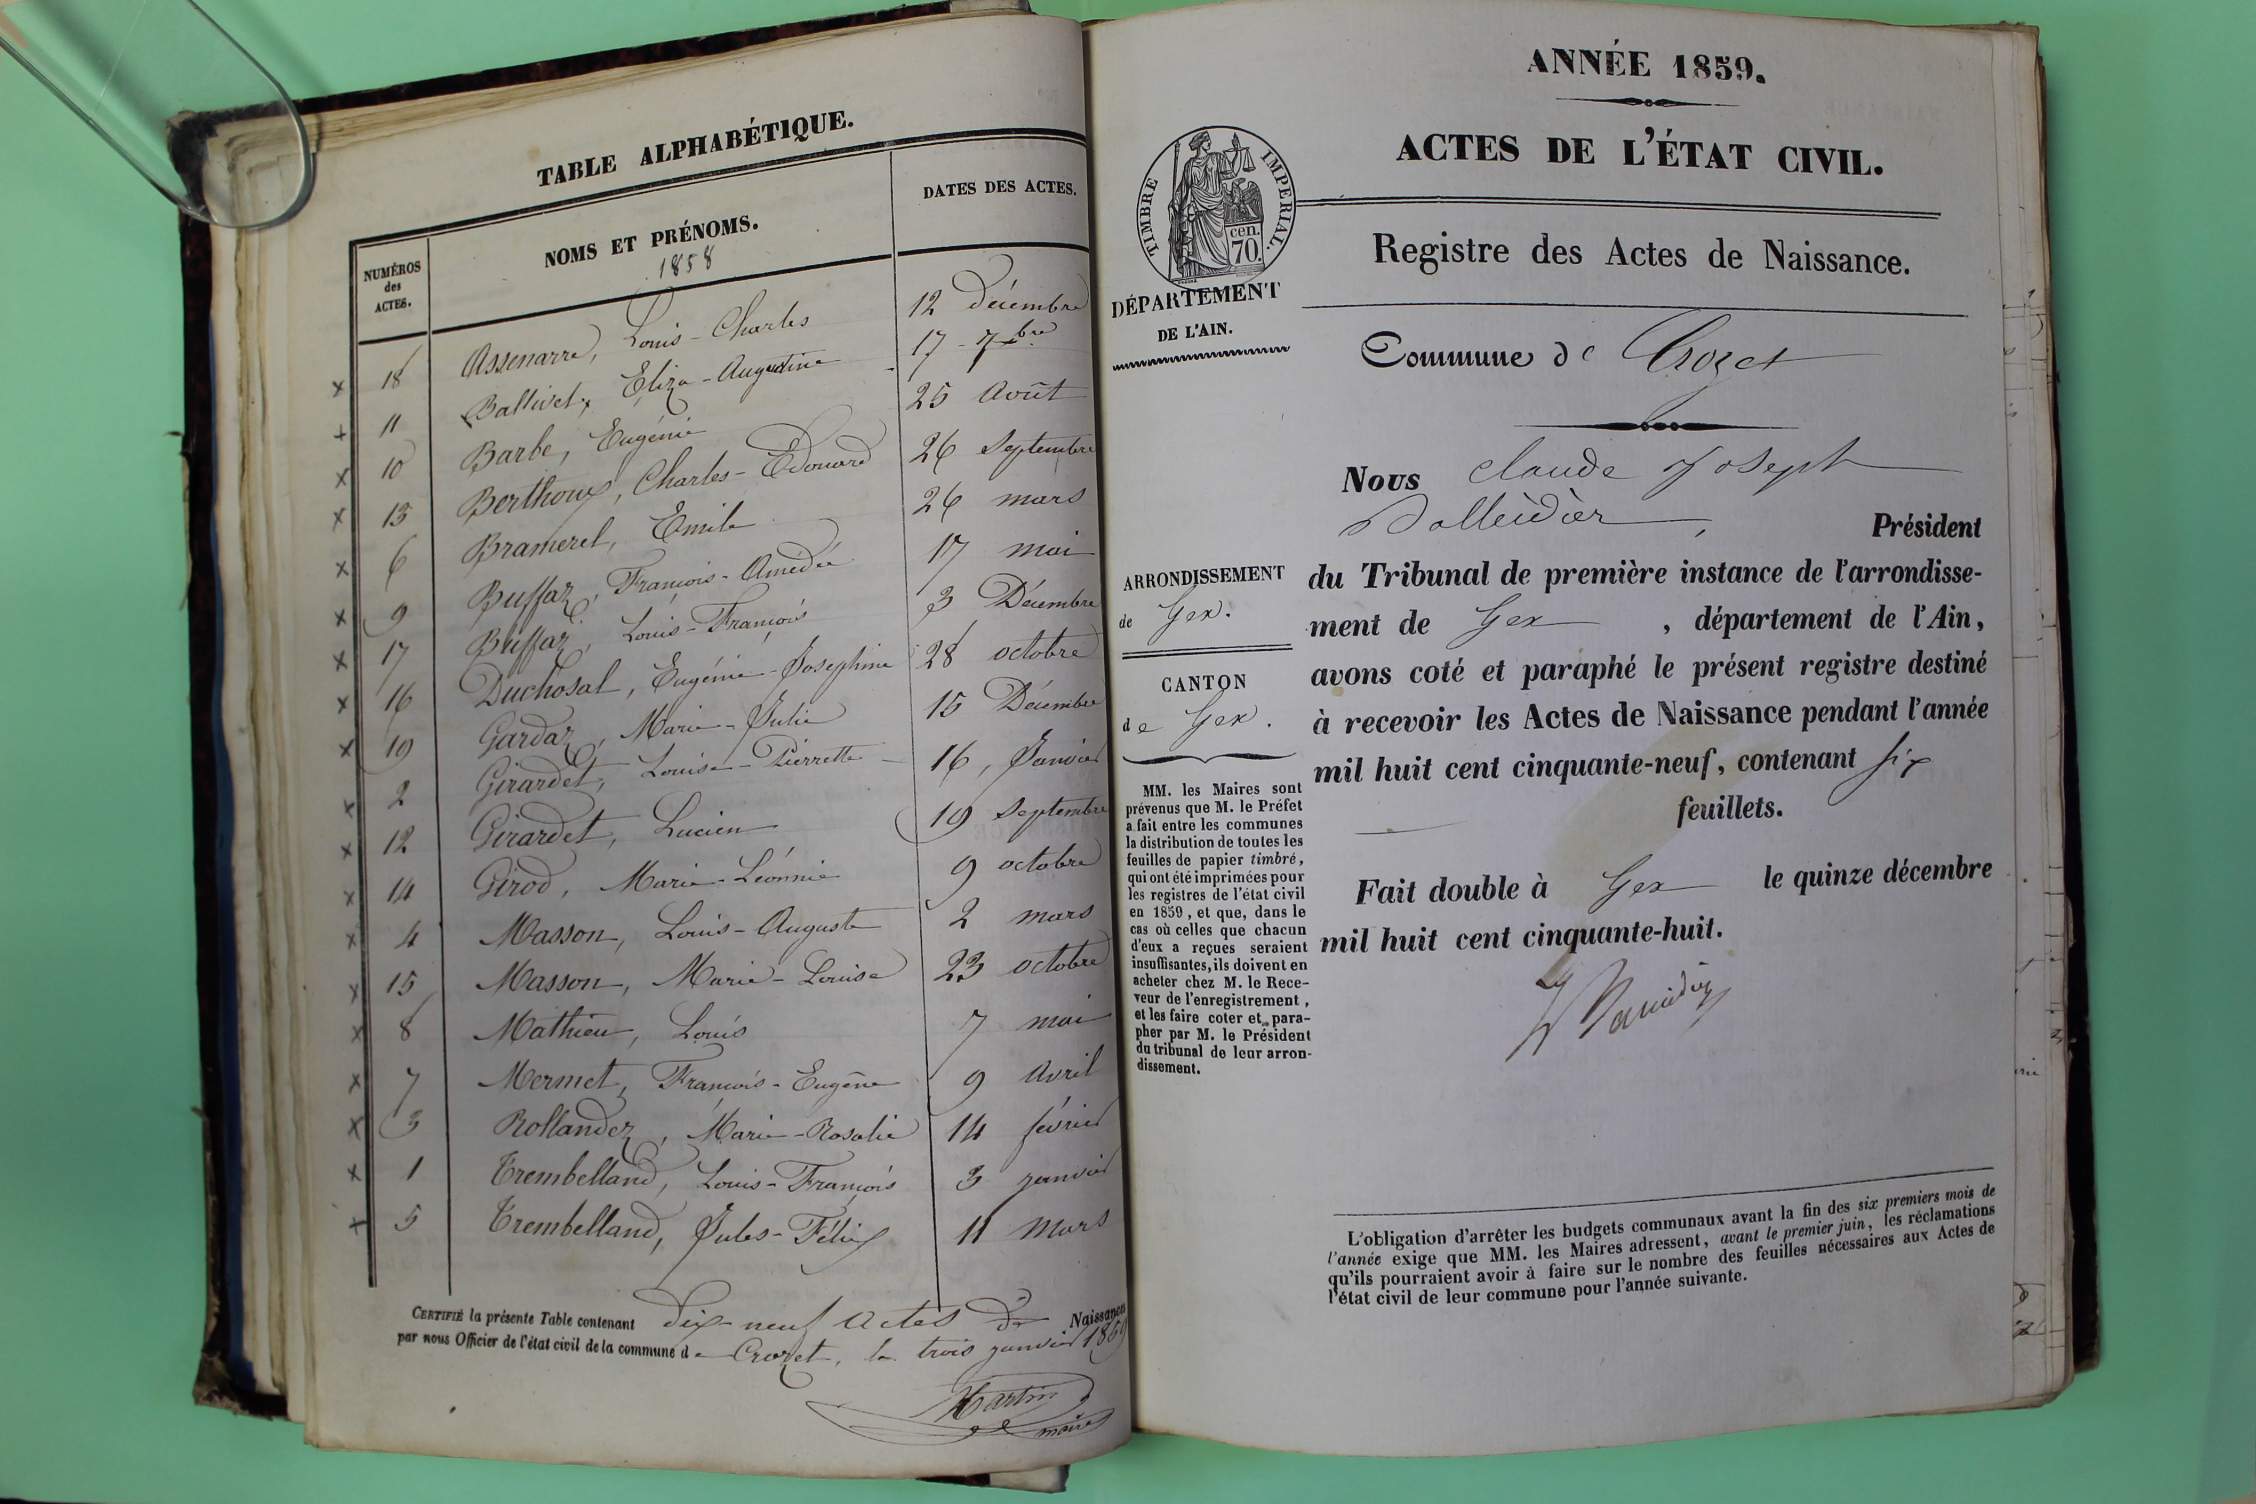 TABLE ALPHABÉTIQUE.
NUMÉROS des ACTES. NOMS ET PRÉNOMS. DATES DES ACTES.
1858
x 18 Assenarre, Louis-Charles 12 décembre
+ 11 Ballivet, Eliza-Augustine 17 7bre
x 10 Barbe, Eugénie 25 Août
x 13 Berthoux, Charles-Edouard 26 Septembre
x 6 Brameret, Emile 26 mars
x 9 Buffaz, François-Amédée 17 mai
x 17 Buffaz, Louis-François 3 Décembre
x 16 Duchosal, Eugénie-Joséphine 28 octobre
x 19 Gardaz, Marie-Julie 15 Décembre
x 2 Girardet, Louise-Pierrette 16, Janvier
x 12 Girardet, Lucien 19 Septembre
x 14 Girod, Marie-Léonnie 9 octobre
x 4 Masson, Louis-Auguste 2 mars
x 15 Masson, Marie-Louise 23 octobre
x 8 Mathieu, Louis 7 mai
x 7 Mermet, François-Eugène 9 Avril
x 3 Rollandez, Marie-Rosalie 14 février
x 1 Trembelland, Louis-François 3 janvier
+ 5 Trembelland, Jules-Félix 11 Mars
CERTIFIÉ la présente Table contenant dix-neuf actes de Naissances
par nous Officier de l'état civil de la commune de Crozet, le trois janvier 1859
Martin
maire
ANNÉE 1859.
ACTES DE L'ÉTAT CIVIL.
TIMBRE IMPERIAL.
cen.
70.
Registre des Actes de Naissance.
DÉPARTEMENT
DE L'AIN.
Commune de Crozet
Nous Claude Joseph
, Président
du Tribunal de première instance de l'arrondisse-
ment de Gex , département de l'Ain,
avons coté et paraphé le présent registre destiné
à recevoir les Actes de Naissance pendant l'année
mil huit cent cinquante-neuf, contenant six
feuillets.
Fait double à Gex le quinze décembre
mil huit cent cinquante-huit.
ARRONDISSEMENT
de Gex.
CANTON
de Gex.
MM. les Maires sont
prévenus que M. le Préfet
a fait entre les communes
la distribution de toutes les
feuilles de papier timbré,
qui ont été imprimées pour
les registres de l'état civil
en 1859, et que, dans le
cas où celles que chacun
d'eux a reçues seraient
insuffisantes, ils doivent en
acheter chez M. le Rece-
veur de l'enregistrement,
et les faire coter et para-
pher par M. le Président
du tribunal de leur arron-
dissement.
L'obligation d'arrêter les budgets communaux avant la fin des six premiers mois de
l'année exige que MM. les Maires adressent, avant le premier juin, les réclamations
qu'ils pourraient avoir à faire sur le nombre des feuilles nécessaires aux Actes de
l'état civil de leur commune pour l'année suivante.